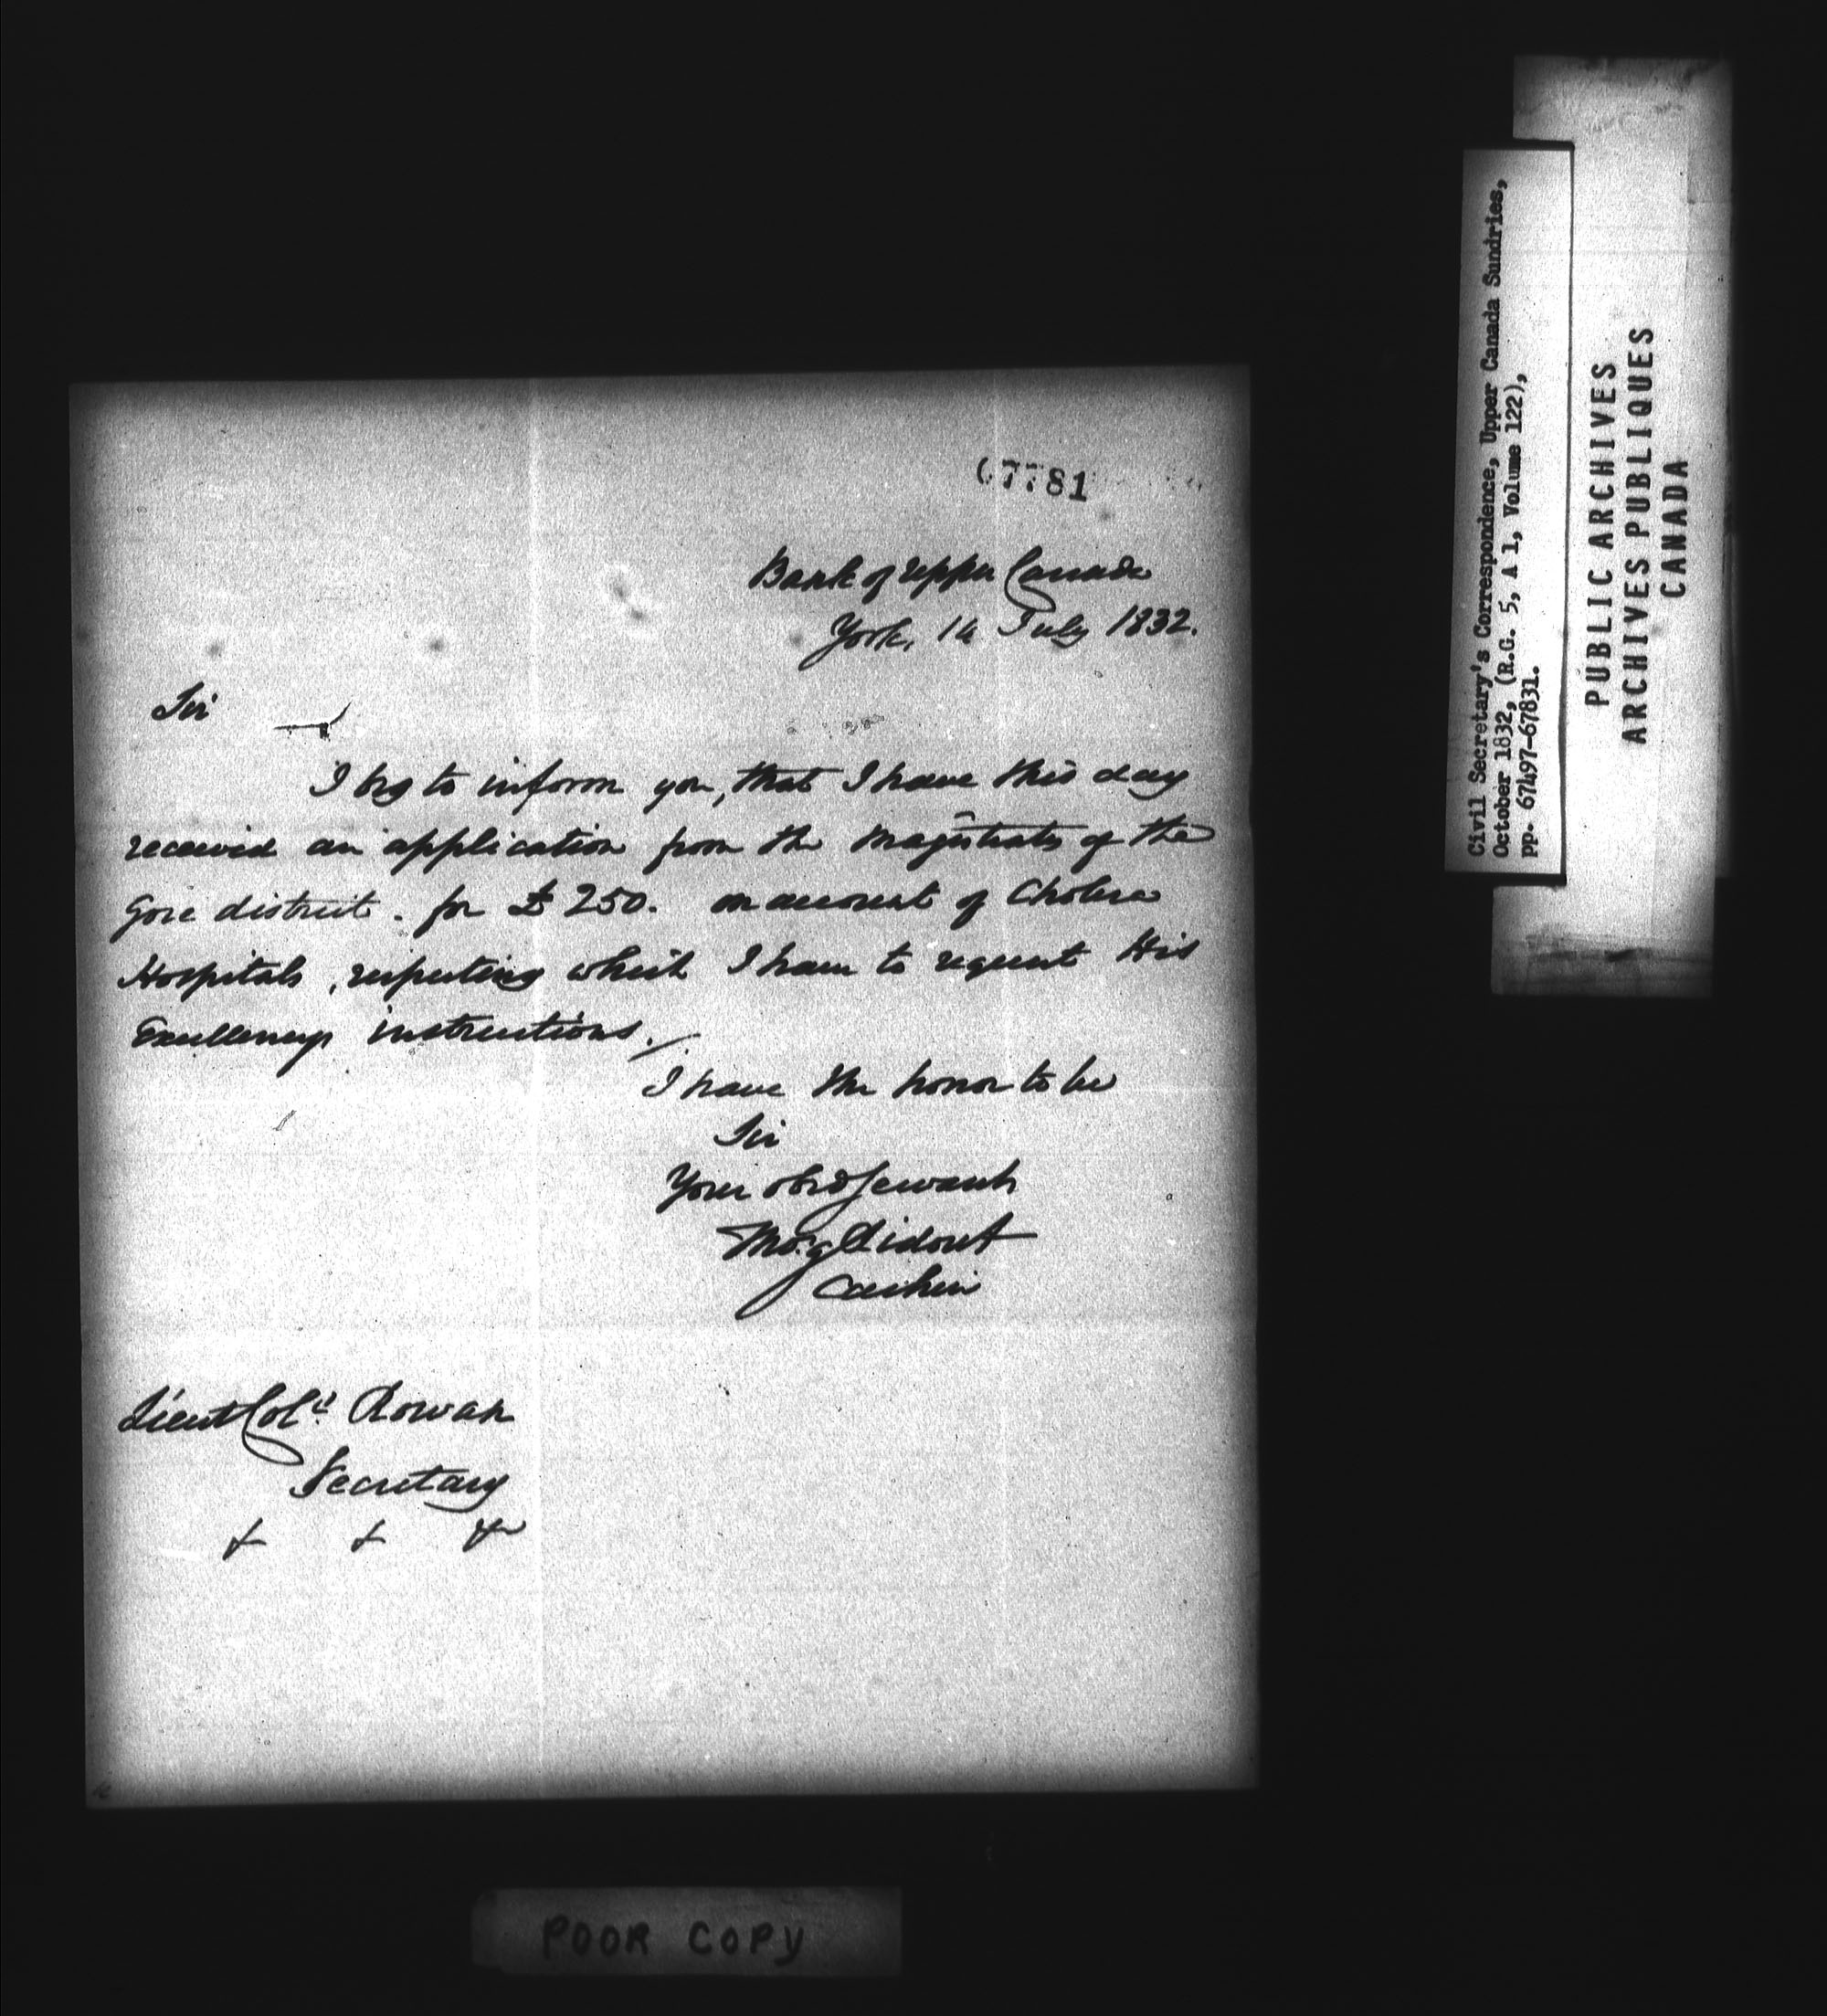 67781
Bank of Upper Canada
York, 14 July 1832.
Sir
I beg to inform you, that I have this day
received an application from the Magistrates of the
Gore district. for £250. on account of Cholera
Hospitals, respecting which I have to request His
Excellency instructions.
I have the honor to be
Sir
Your obed Servant
Thos. G Ridout
Cashier
Lieut Col. Rowan
Secretary
& & &c
POOR COPY
Civil Secretary's Correspondence, Upper Canada Sundries,
October 1832, (R.G. 5, A 1, Volume 122),
pp. 67497-67831.
PUBLIC ARCHIVES
ARCHIVES PUBLIQUES
CANADA